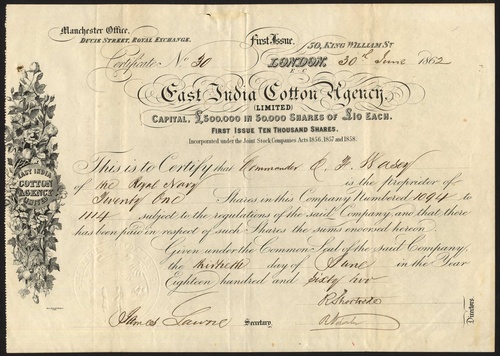 Manchester Office,
DUCIE STREET, ROYAL EXCHANGE.
First Issue.
50, KING WILLIAM ST
Certificate No 30
LONDON, 30th June 1862
E.C.
East India Cotton Agency,
(LIMITED)
CAPITAL, £500,000 IN 50,000 SHARES OF £10 EACH.
FIRST ISSUE TEN THOUSAND SHARES.
Incorporated under the Joint Stock Companies Acts 1856, 1857 and 1858.
EAST INDIA
COTTON
AGENCY
LIMITED
This is to Certify that Commander
of the Royal Navy is the proprietor of
Twenty One Shares in this Company Numbered 1094 to
1114 subject to the regulations of the said Company and that there
has been paid in respect of such Shares the sums endorsed hereon.
Given under the Common Seal of the said Company,
the thirtieth day of June in the Year
Eighteen hundred and Sixty two
James Secretary.
Directors.